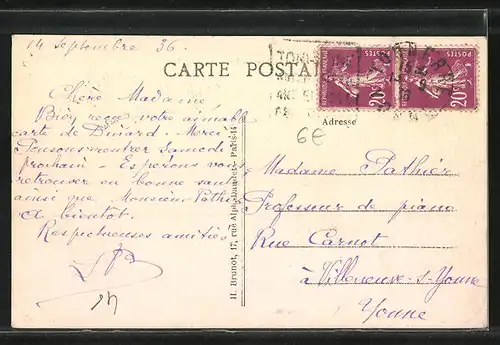 14 Septembre 36.
CARTE POSTALE
Chère Madame
Bien reçu votre aimable
carte de Dinard. Merci
Pensons rentrer Samedi
prochain - Espérons vous
retrouver en bonne santé
ainsi que Monsieur Pathier
A bientôt.
Respectueuses amitiés
H. Brunot, 17, rue Alph.-Daudet - Paris-14
POSTES
20c
POSTES
20c
Adresse
6€
Madame Pathier
Professeur de piano
Rue Carnot
à Villeneuve-s-Yonne
Yonne